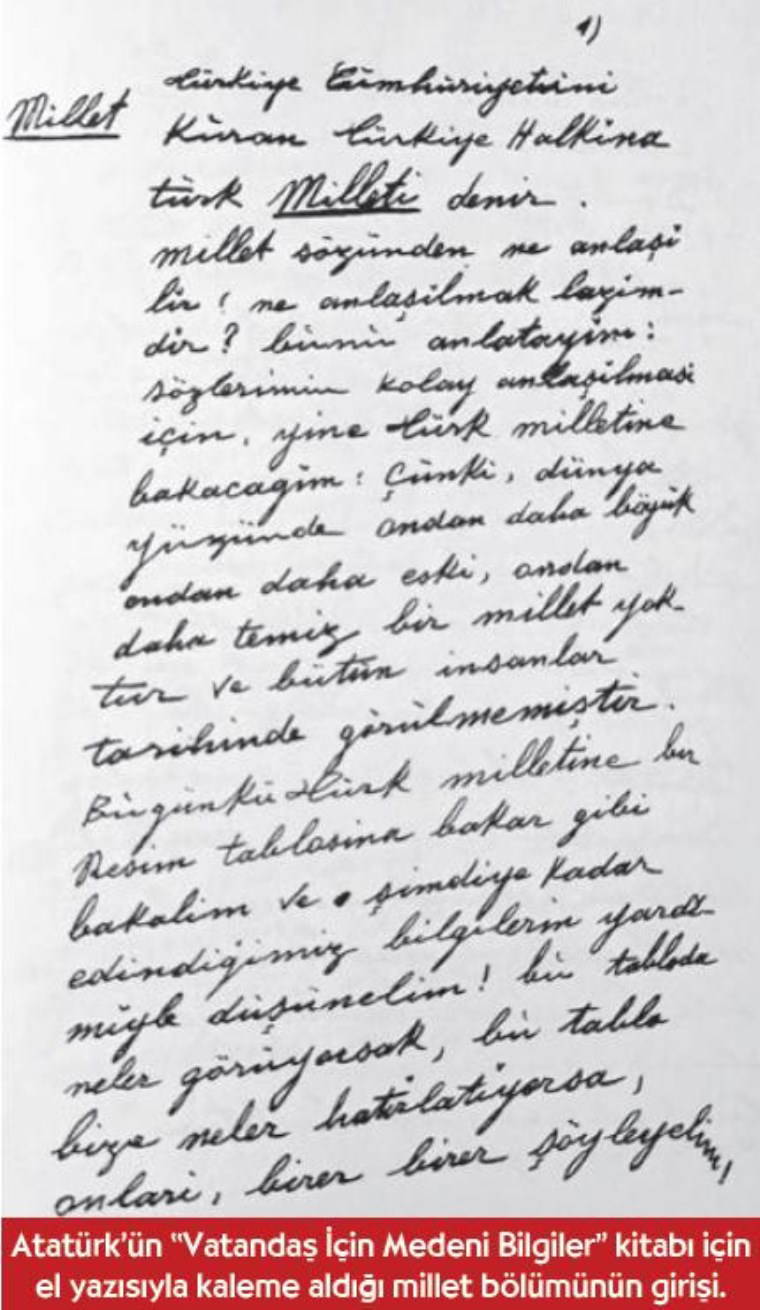 1)
Millet
türkiye Cümhüriyetini
Kuran türkiye Halkina
türk Milleti denir.
millet sözünden ne anlaşi
lir ; ne anlaşilmak lazim-
dir ? bunu anlatayim :
sözlerimin kolay anlaşilmasi
için, yine türk milletine
bakacagim : Çünki, dünya
yüzünde ondan daha böyük
ondan daha eski, ondan
daha temiz bir millet yok-
tur ve bütün insanlar
tarihinde görülmemiştir.
Bugünkü türk milletine bir
Resim tablosina bakar gibi
bakalim ve şimdiye Kadar
edindiğimiz bilgilerin yardi-
miyle düşünelim! bu tabloda
neler görüyorsak, bu tablo
bize neler hatirlatiyorsa,
onlari, birer birer söyleyelim,
Atatürk'ün "Vatandaş İçin Medeni Bilgiler" kitabı için
el yazısıyla kaleme aldığı millet bölümünün girişi.